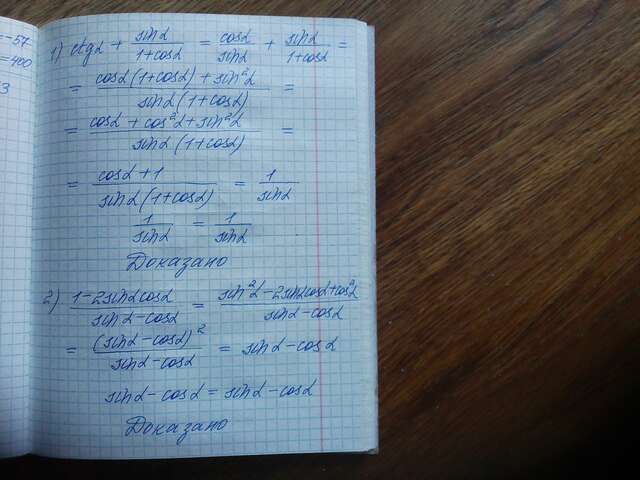 =-57
=400
3
1) ctgα + sinα/(1+cosα) = cosα/sinα + sinα/(1+cosα) =
= (cosα(1+cosα)+sin²α)/(sinα(1+cosα)) =
= (cosα+cos²α+sin²α)/(sinα(1+cosα)) =
= (cosα+1)/(sinα(1+cosα)) = 1/sinα
1/sinα = 1/sinα
Доказано
2) (1-2sinαcosα)/(sinα-cosα) = (sin²α-2sinαcosα+cos²α)/(sinα-cosα)
= (sinα-cosα)²/(sinα-cosα) = sinα-cosα
sinα-cosα = sinα-cosα
Доказано